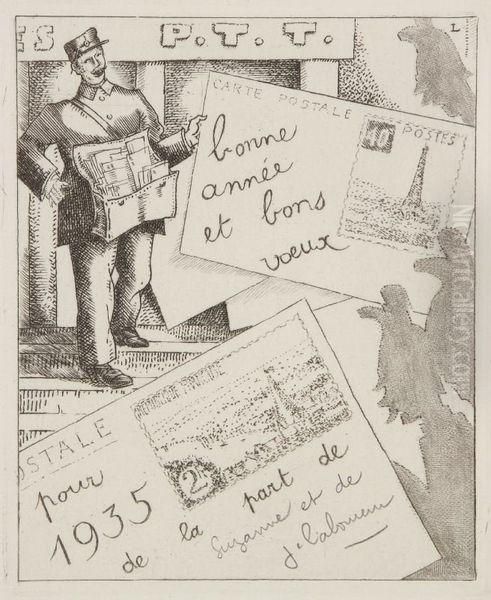 ES P.T.T.
L
CARTE POSTALE
POSTES
bonne
année
et bons
vœux
OSTALE
2
pour
1935
de la part de
Suzanne et de